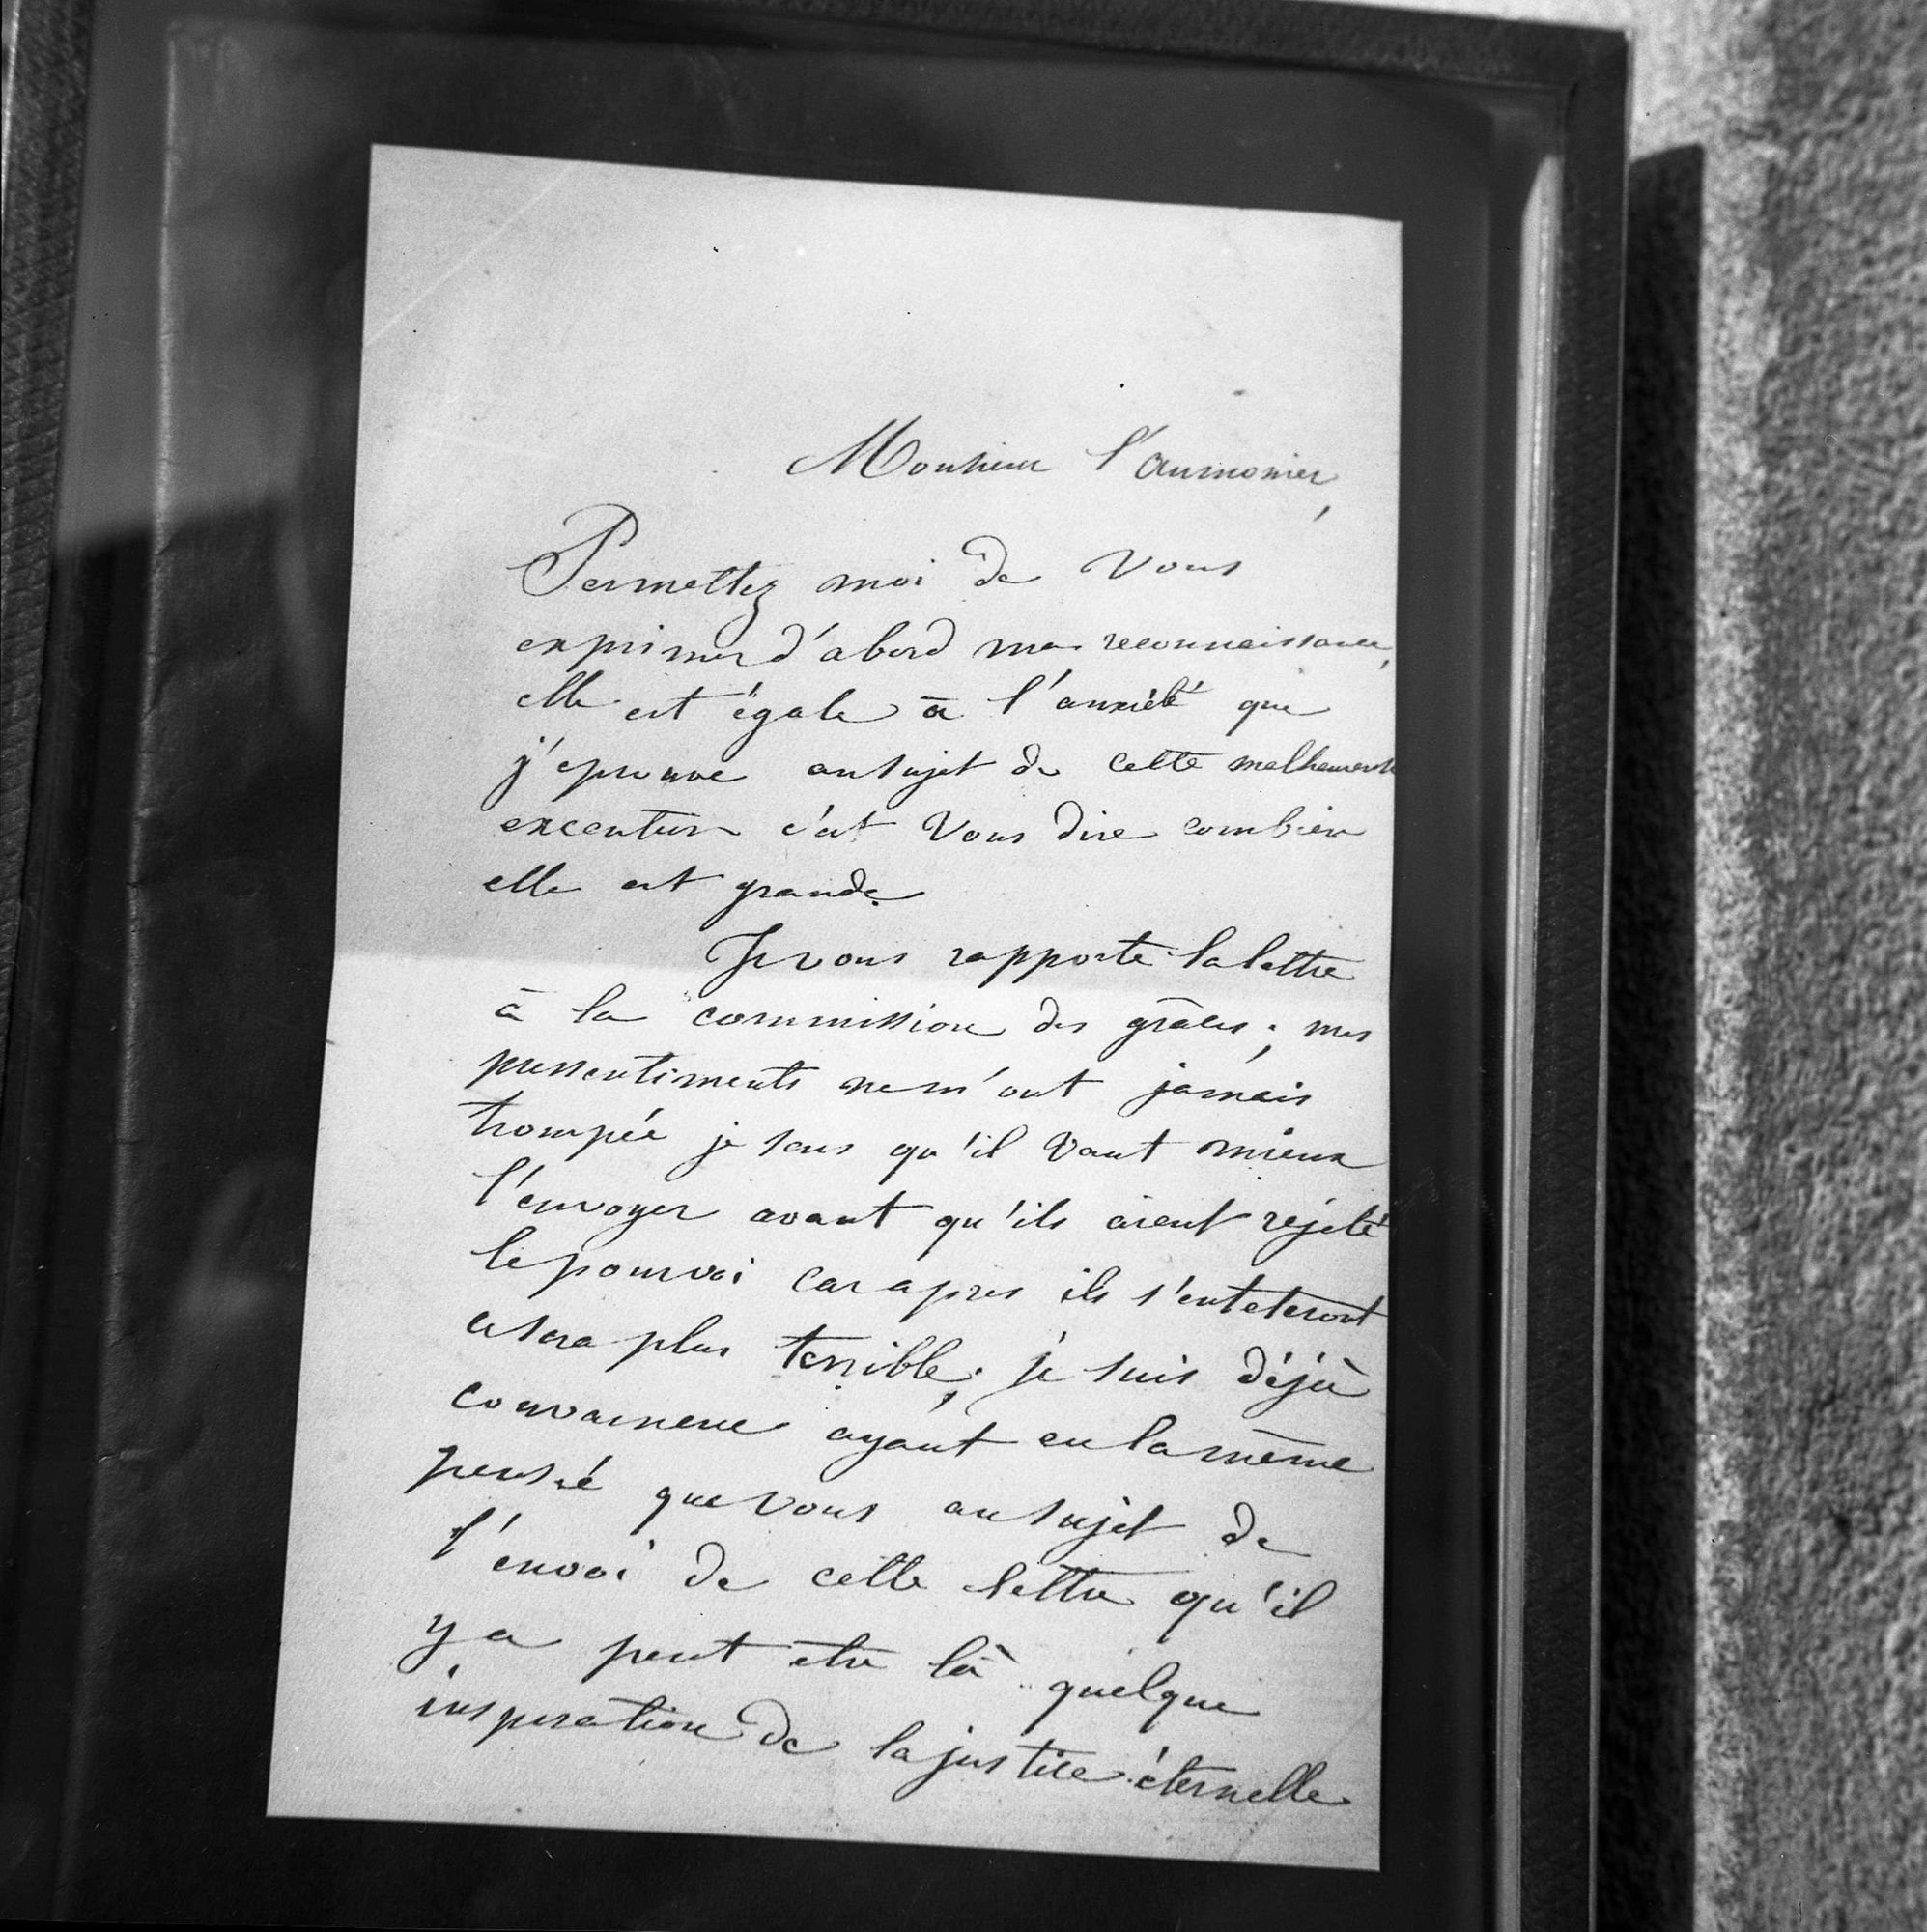 Monsieur l'aumonier,
Permettez moi de vous
exprimer d'abord ma reconnaissance,
elle est égale à l'anxiété que
j'eprouve au sujet de cette malheureuse
execution c'est vous dire combien
elle est grande.
Je vous rapporte la lettre
à la commission des grâces ; mes
pressentiments ne m'ont jamais
trompée je sens qu'il vaut mieux
l'envoyer avant qu'ils aient rejeté
le pourvoi car apres ils s'enteteront
ce sera plus terrible ; je suis déjà
convaincue ayant eu la même
pensé que vous au sujet de
l'envoi de cette lettre qu'il
y a peut etre là quelque
inspiration de la justice éternelle